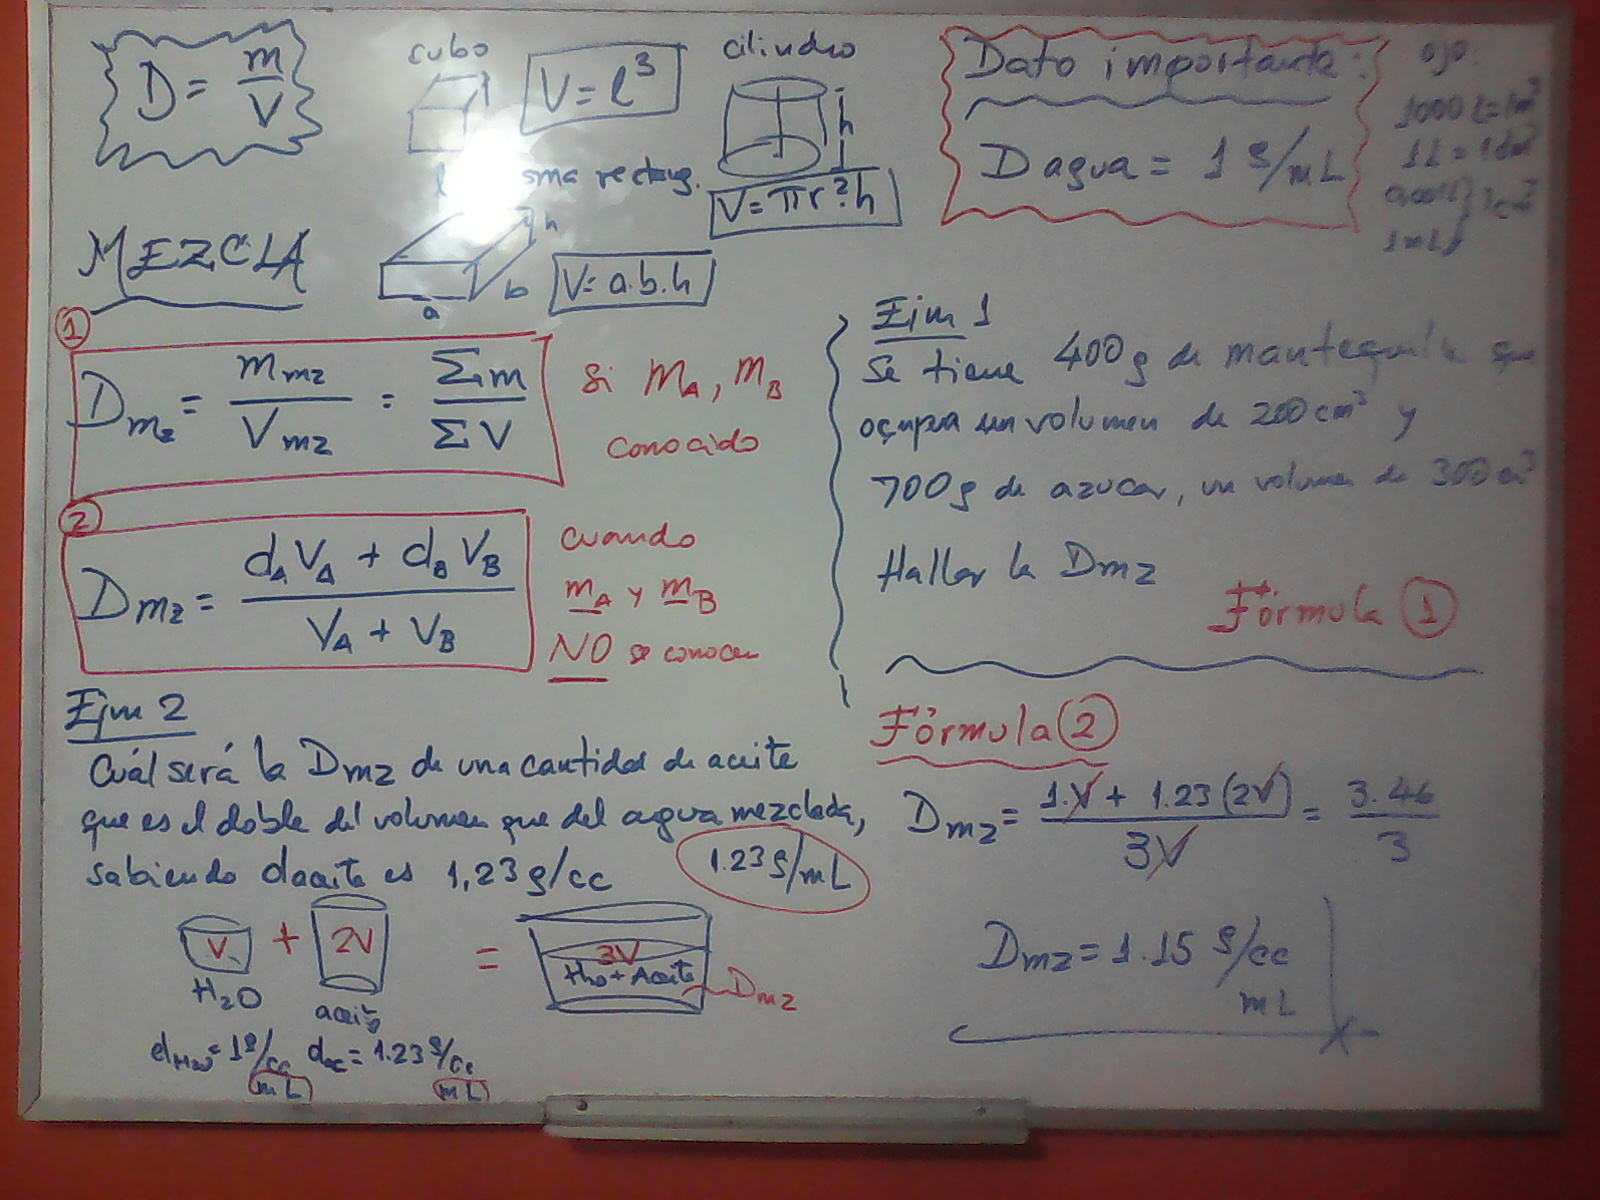 D = m/V
cubo
l
l
V = l³
cilindro
h
V = πr².h
Dato importante:
D agua = 1 g/mL
ojo:
1000 L = 1m³
1L = 1dm³
0,001L } 1cm³
1mL
sma rectang.
h
b
a
V = a.b.h
MEZCLA
1
Dmz = mmz/Vmz = Σm/ΣV
Si mA, mB
conocido
2
Dmz = (dA VA + dB VB)/(VA + VB)
cuando
mA y mB
NO se conocen
Ejm 1
Se tiene 400g de mantequilla que
ocupan un volumen de 200cm³ y
700g de azucar, un volumen de 300cm³
Hallar la Dmz
Fórmula 1
Ejm 2
Cuál será la Dmz de una cantidad de aceite
que es el doble del volumen que del agua mezclada,
sabiendo daceite es 1,23 g/cc
1.23 g/mL
V + 2V = 3V
H2O
aceite
H2O + Aceite
Dmz
dH2O = 1g/cc dac = 1.23 g/cc
mL mL
Fórmula 2
Dmz = (1.V + 1.23(2V))/3V = 3.46/3
Dmz = 1.15 g/cc
mL